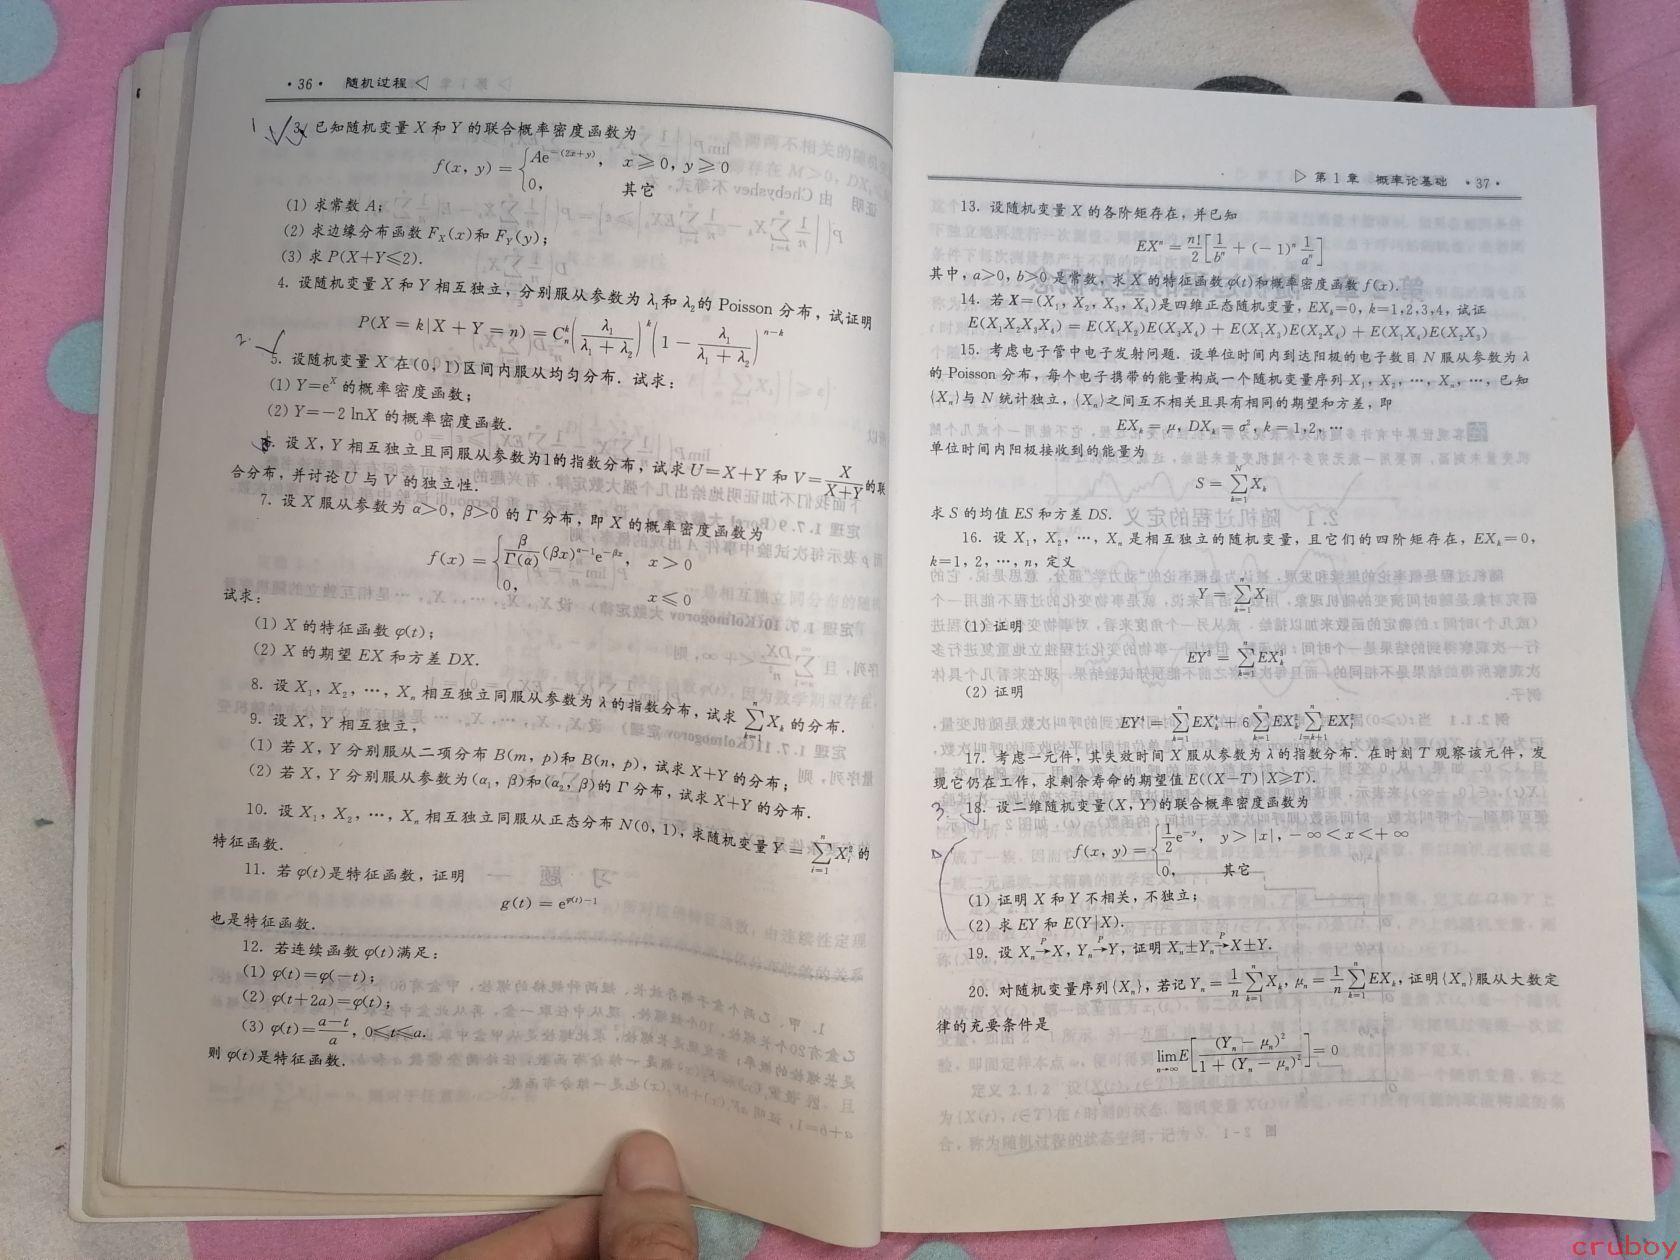 · 36 · 随机过程 ◁
1 3. 已知随机变量 X 和 Y 的联合概率密度函数为
f(x, y) = { Ae^{-(2x+y)}, x⩾0, y⩾0
0, 其它
(1) 求常数 A;
(2) 求边缘分布函数 F_X(x)和 F_Y(y);
(3) 求 P(X+Y⩽2).
4. 设随机变量 X 和 Y 相互独立, 分别服从参数为 λ₁和 λ₂的 Poisson 分布, 试证明
P(X = k|X + Y = n) = C_n^k (λ₁/(λ₁ + λ₂))^k (1 − λ₁/(λ₁ + λ₂))^{n−k}
2. 5. 设随机变量 X 在(0, 1)区间内服从均匀分布. 试求:
(1) Y=e^X 的概率密度函数;
(2) Y=−2 lnX 的概率密度函数.
6. 设 X, Y 相互独立且同服从参数为1的指数分布, 试求 U=X+Y 和 V=X/(X+Y)的联
合分布, 并讨论 U 与 V 的独立性.
7. 设 X 服从参数为 α>0, β>0 的 Γ 分布, 即 X 的概率密度函数为
f(x) = { β/Γ(α) (βx)^{α−1}e^{−βx}, x > 0
0, x ⩽ 0
试求:
(1) X 的特征函数 φ(t);
(2) X 的期望 EX 和方差 DX.
8. 设 X₁, X₂, …, Xₙ 相互独立同服从参数为 λ 的指数分布, 试求 ∑_{k=1}^{n} X_k 的分布.
9. 设 X, Y 相互独立,
(1) 若 X, Y 分别服从二项分布 B(m, p)和 B(n, p), 试求 X+Y 的分布;
(2) 若 X, Y 分别服从参数为(α₁, β)和(α₂, β)的 Γ 分布, 试求 X+Y 的分布.
10. 设 X₁, X₂, …, Xₙ 相互独立同服从正态分布 N(0, 1), 求随机变量 Y = ∑_{i=1}^{n} X_i² 的
特征函数.
11. 若 φ(t)是特征函数, 证明
g(t) = e^{φ(t)−1}
也是特征函数.
12. 若连续函数 φ(t)满足:
(1) φ(t)=φ(−t);
(2) φ(t+2a)=φ(t);
(3) φ(t)=(a−t)/a, 0⩽t⩽a.
则 φ(t)是特征函数.
▷ 第 1 章 概率论基础 · 37 ·
13. 设随机变量 X 的各阶矩存在, 并已知
EXⁿ = n!/2 [1/bⁿ + (−1)ⁿ 1/aⁿ]
其中, a>0, b>0 是常数, 求 X 的特征函数 φ(t)和概率密度函数 f(x).
14. 若 X=(X₁, X₂, X₃, X₄)是四维正态随机变量, EX_k=0, k=1,2,3,4, 试证
E(X₁X₂X₃X₄) = E(X₁X₂)E(X₃X₄) + E(X₁X₃)E(X₂X₄) + E(X₁X₄)E(X₂X₃)
15. 考虑电子管中电子发射问题. 设单位时间内到达阳极的电子数目 N 服从参数为 λ
的 Poisson 分布, 每个电子携带的能量构成一个随机变量序列 X₁, X₂, …, Xₙ, …, 已知
{Xₙ}与 N 统计独立, {Xₙ}之间互不相关且具有相同的期望和方差, 即
EX_k = μ, DX_k = σ², k = 1,2, …
单位时间内阳极接收到的能量为
S = ∑_{k=1}^{N} X_k
求 S 的均值 ES 和方差 DS.
16. 设 X₁, X₂, …, Xₙ 是相互独立的随机变量, 且它们的四阶矩存在, EX_k=0,
k=1, 2, …, n, 定义
Y = ∑_{k=1}^{n} X_k
(1) 证明
EY³ = ∑_{k=1}^{n} EX_k³
(2) 证明
EY⁴ = ∑_{k=1}^{n} EX_k⁴ + 6∑_{k=1}^{n} EX_k² ∑_{i=k+1}^{n} EX_i²
17. 考虑一元件, 其失效时间 X 服从参数为 λ 的指数分布. 在时刻 T 观察该元件, 发
现它仍在工作, 求剩余寿命的期望值 E((X−T)|X⩾T).
3. 18. 设二维随机变量(X, Y)的联合概率密度函数为
f(x, y) = { 1/2 e^{−y}, y > |x|, −∞ < x < +∞
0, 其它
(1) 证明 X 和 Y 不相关, 不独立;
(2) 求 EY 和 E(Y|X).
19. 设 Xₙ →^P X, Yₙ →^P Y, 证明 Xₙ±Yₙ →^P X±Y.
20. 对随机变量序列{Xₙ}, 若记 Yₙ = 1/n ∑_{k=1}^{n} X_k, μₙ = 1/n ∑_{k=1}^{n} EX_k, 证明{Xₙ}服从大数定
律的充要条件是
lim_{n→∞} E[(Yₙ − μₙ)²/(1 + (Yₙ − μₙ)²)] = 0
cruboy